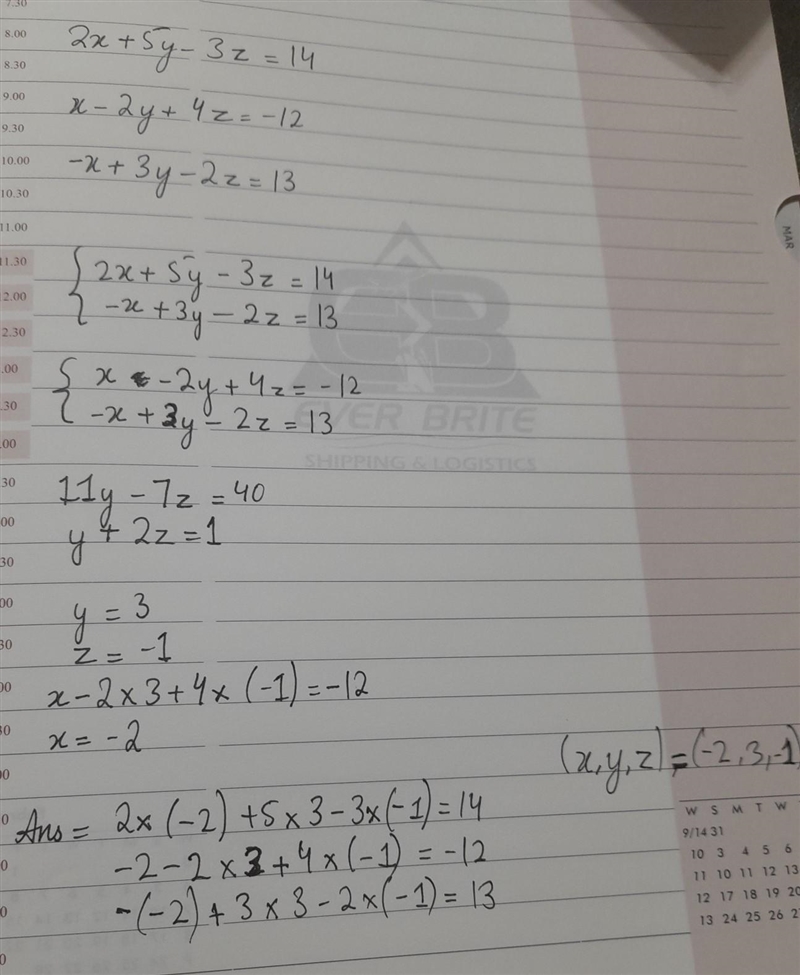 7.30
8.00
8.30
9.00
9.30
10.00
10.30
11.00
11.30
2.00
2.30
.00
.30
.00
30
00
30
00
30
00
30
00
0
0
0
0
2x + 5y - 3z = 14
x - 2y + 4z = -12
-x + 3y - 2z = 13
{ 2x + 5y - 3z = 14
-x + 3y - 2z = 13
{ x - 2y + 4z = -12
-x + 3y - 2z = 13
11y - 7z = 40
y + 2z = 1
y = 3
z = -1
x - 2 × 3 + 4 × (-1) = -12
x = -2
(x, y, z) = (-2, 3, -1)
Ans = 2× (-2) + 5 × 3 - 3×(-1) = 14
-2 - 2 × 3 + 4 × (-1) = -12
-(-2) + 3 × 3 - 2×(-1) = 13
EVER BRITE
SHIPPING & LOGISTICS
MAR
W S M T W
9/14 31
10 3 4 5 6
11 10 11 12 13
12 17 18 19 20
13 24 25 26